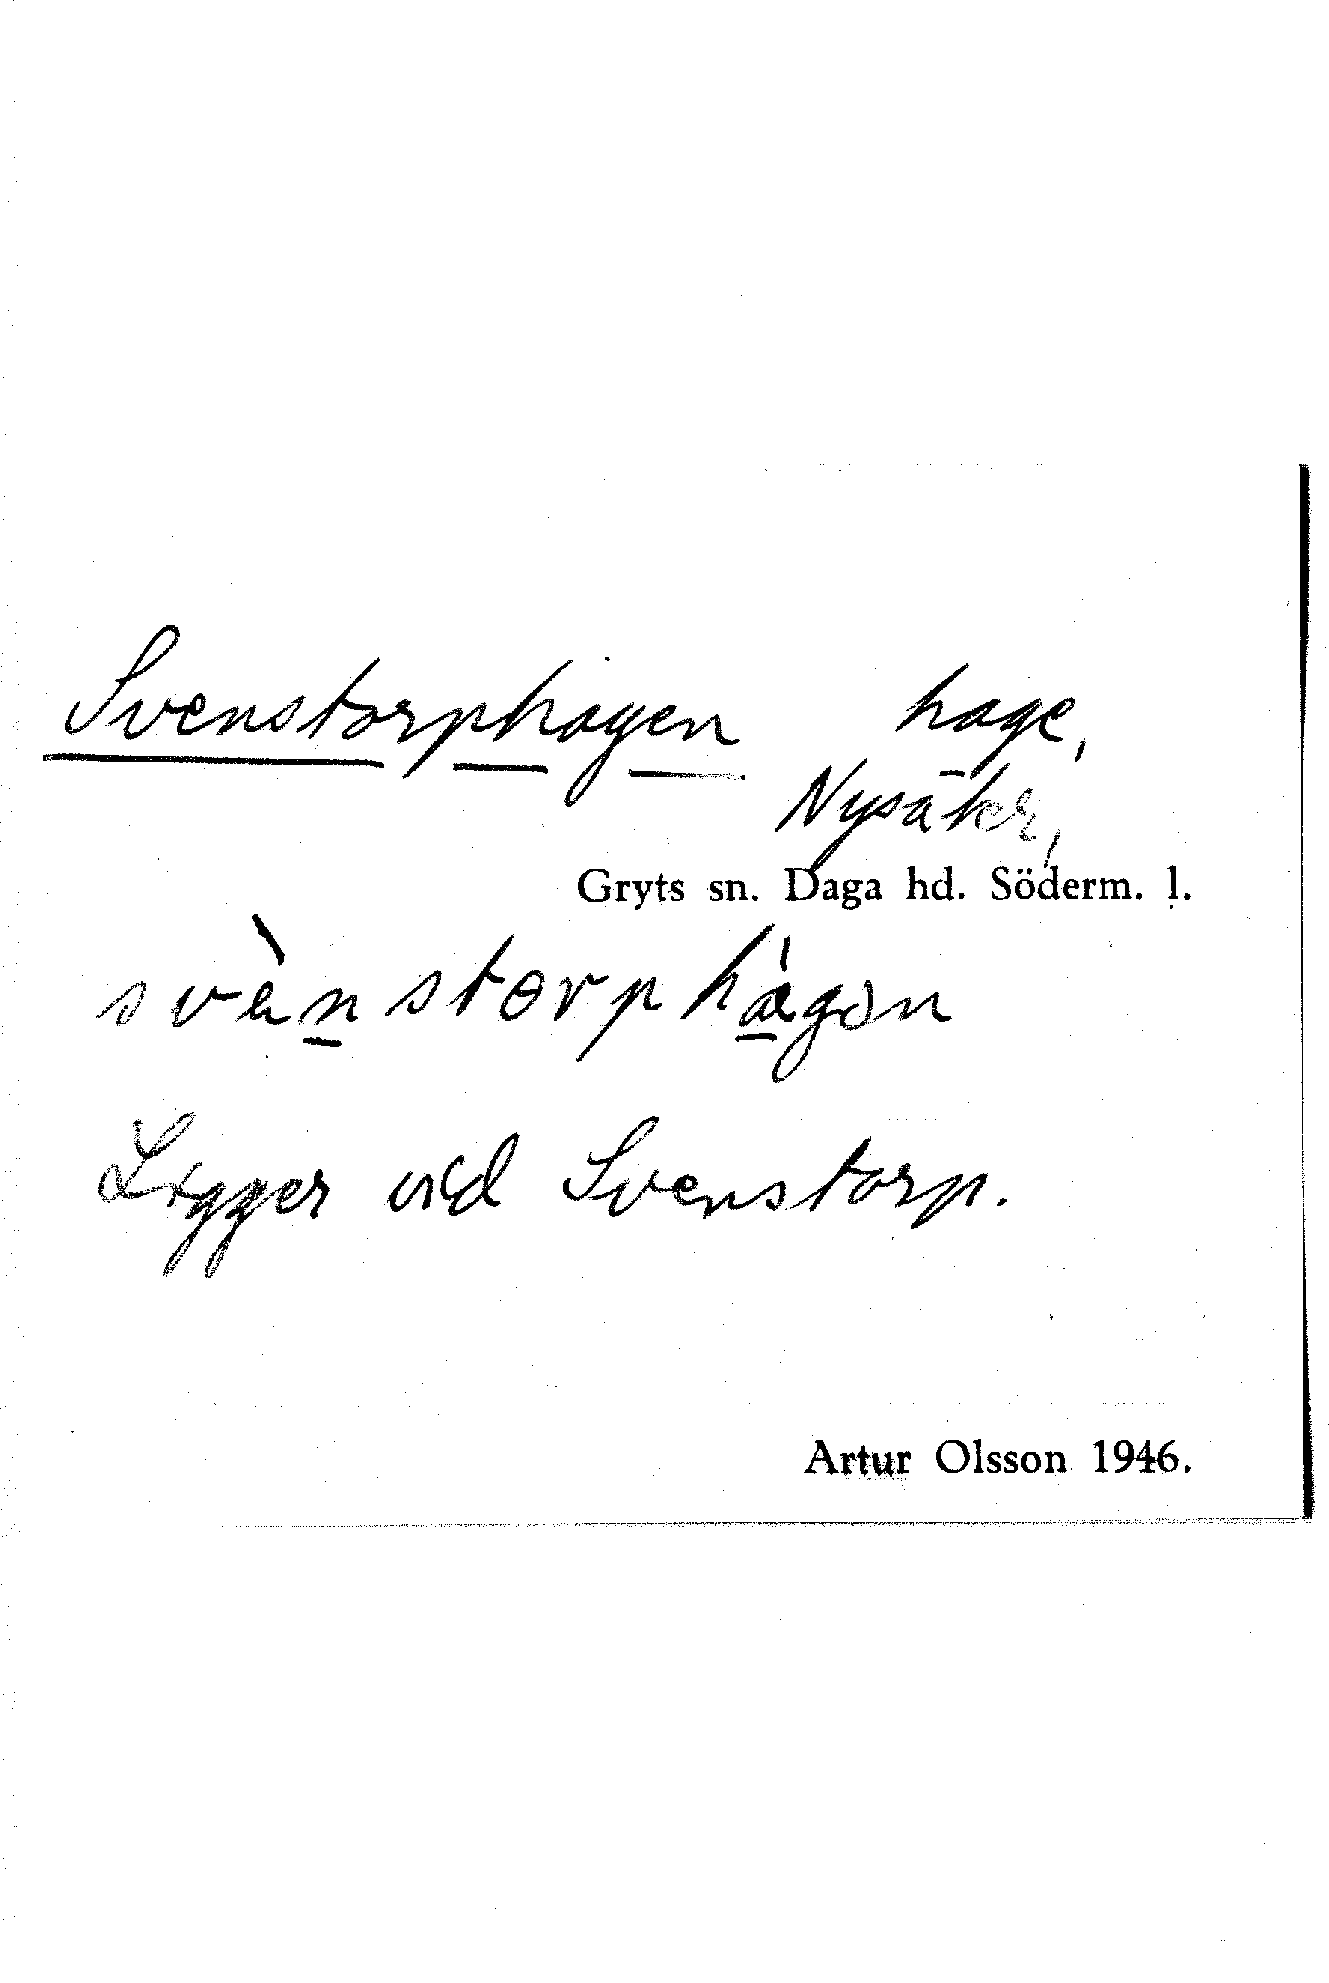 Svenstorphagen hage,
Nysäter,
Gryts sn. Daga hd. Söderm. l.
svènstɵrphágən
Ligger vid Svenstorp.
Artur Olsson 1946.